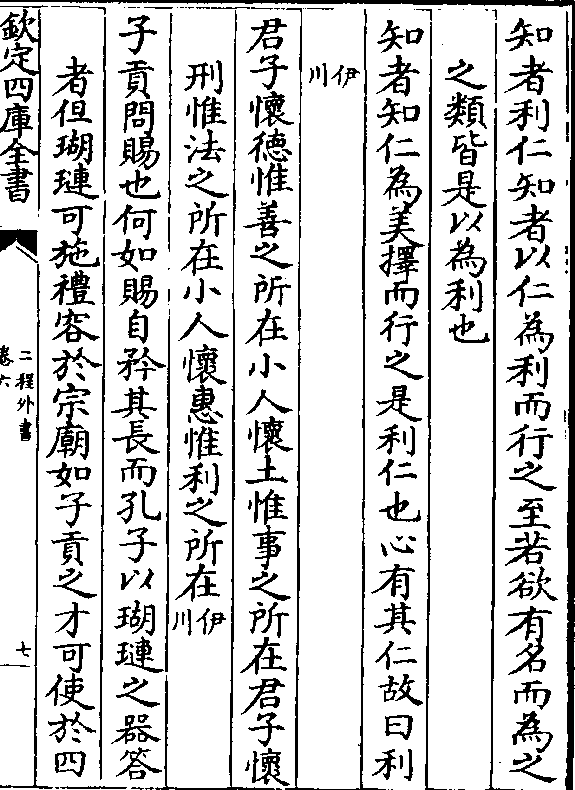 知者利仁知者以仁為利而行之至若欲有名而為之
之類皆是以為利也
知者知仁為美擇而行之是利仁也心有其仁故曰利
伊川
君子懷德惟善之所在小人懷土惟事之所在君子懷
刑惟法之所在小人懷惠惟利之所在伊川
子貢問賜也何如賜自矜其長而孔子以瑚璉之器答
者但瑚璉可施禮容於宗廟如子貢之才可使於四
欽定四庫全書
二程外書
卷六
七